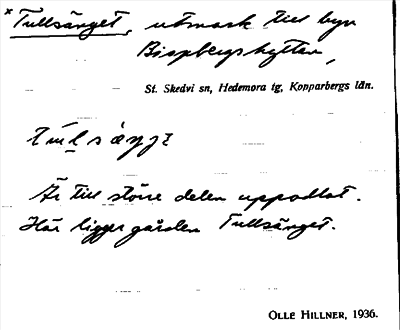 × Tullsänget, utmark till byn
Bispbergshyttan,
St. Skedvi sn, Hedemora tg, Kopparbergs län.
Är till större delen uppodlat.
Här ligger gården Tullsänget.
OLLE HILLNER, 1936.